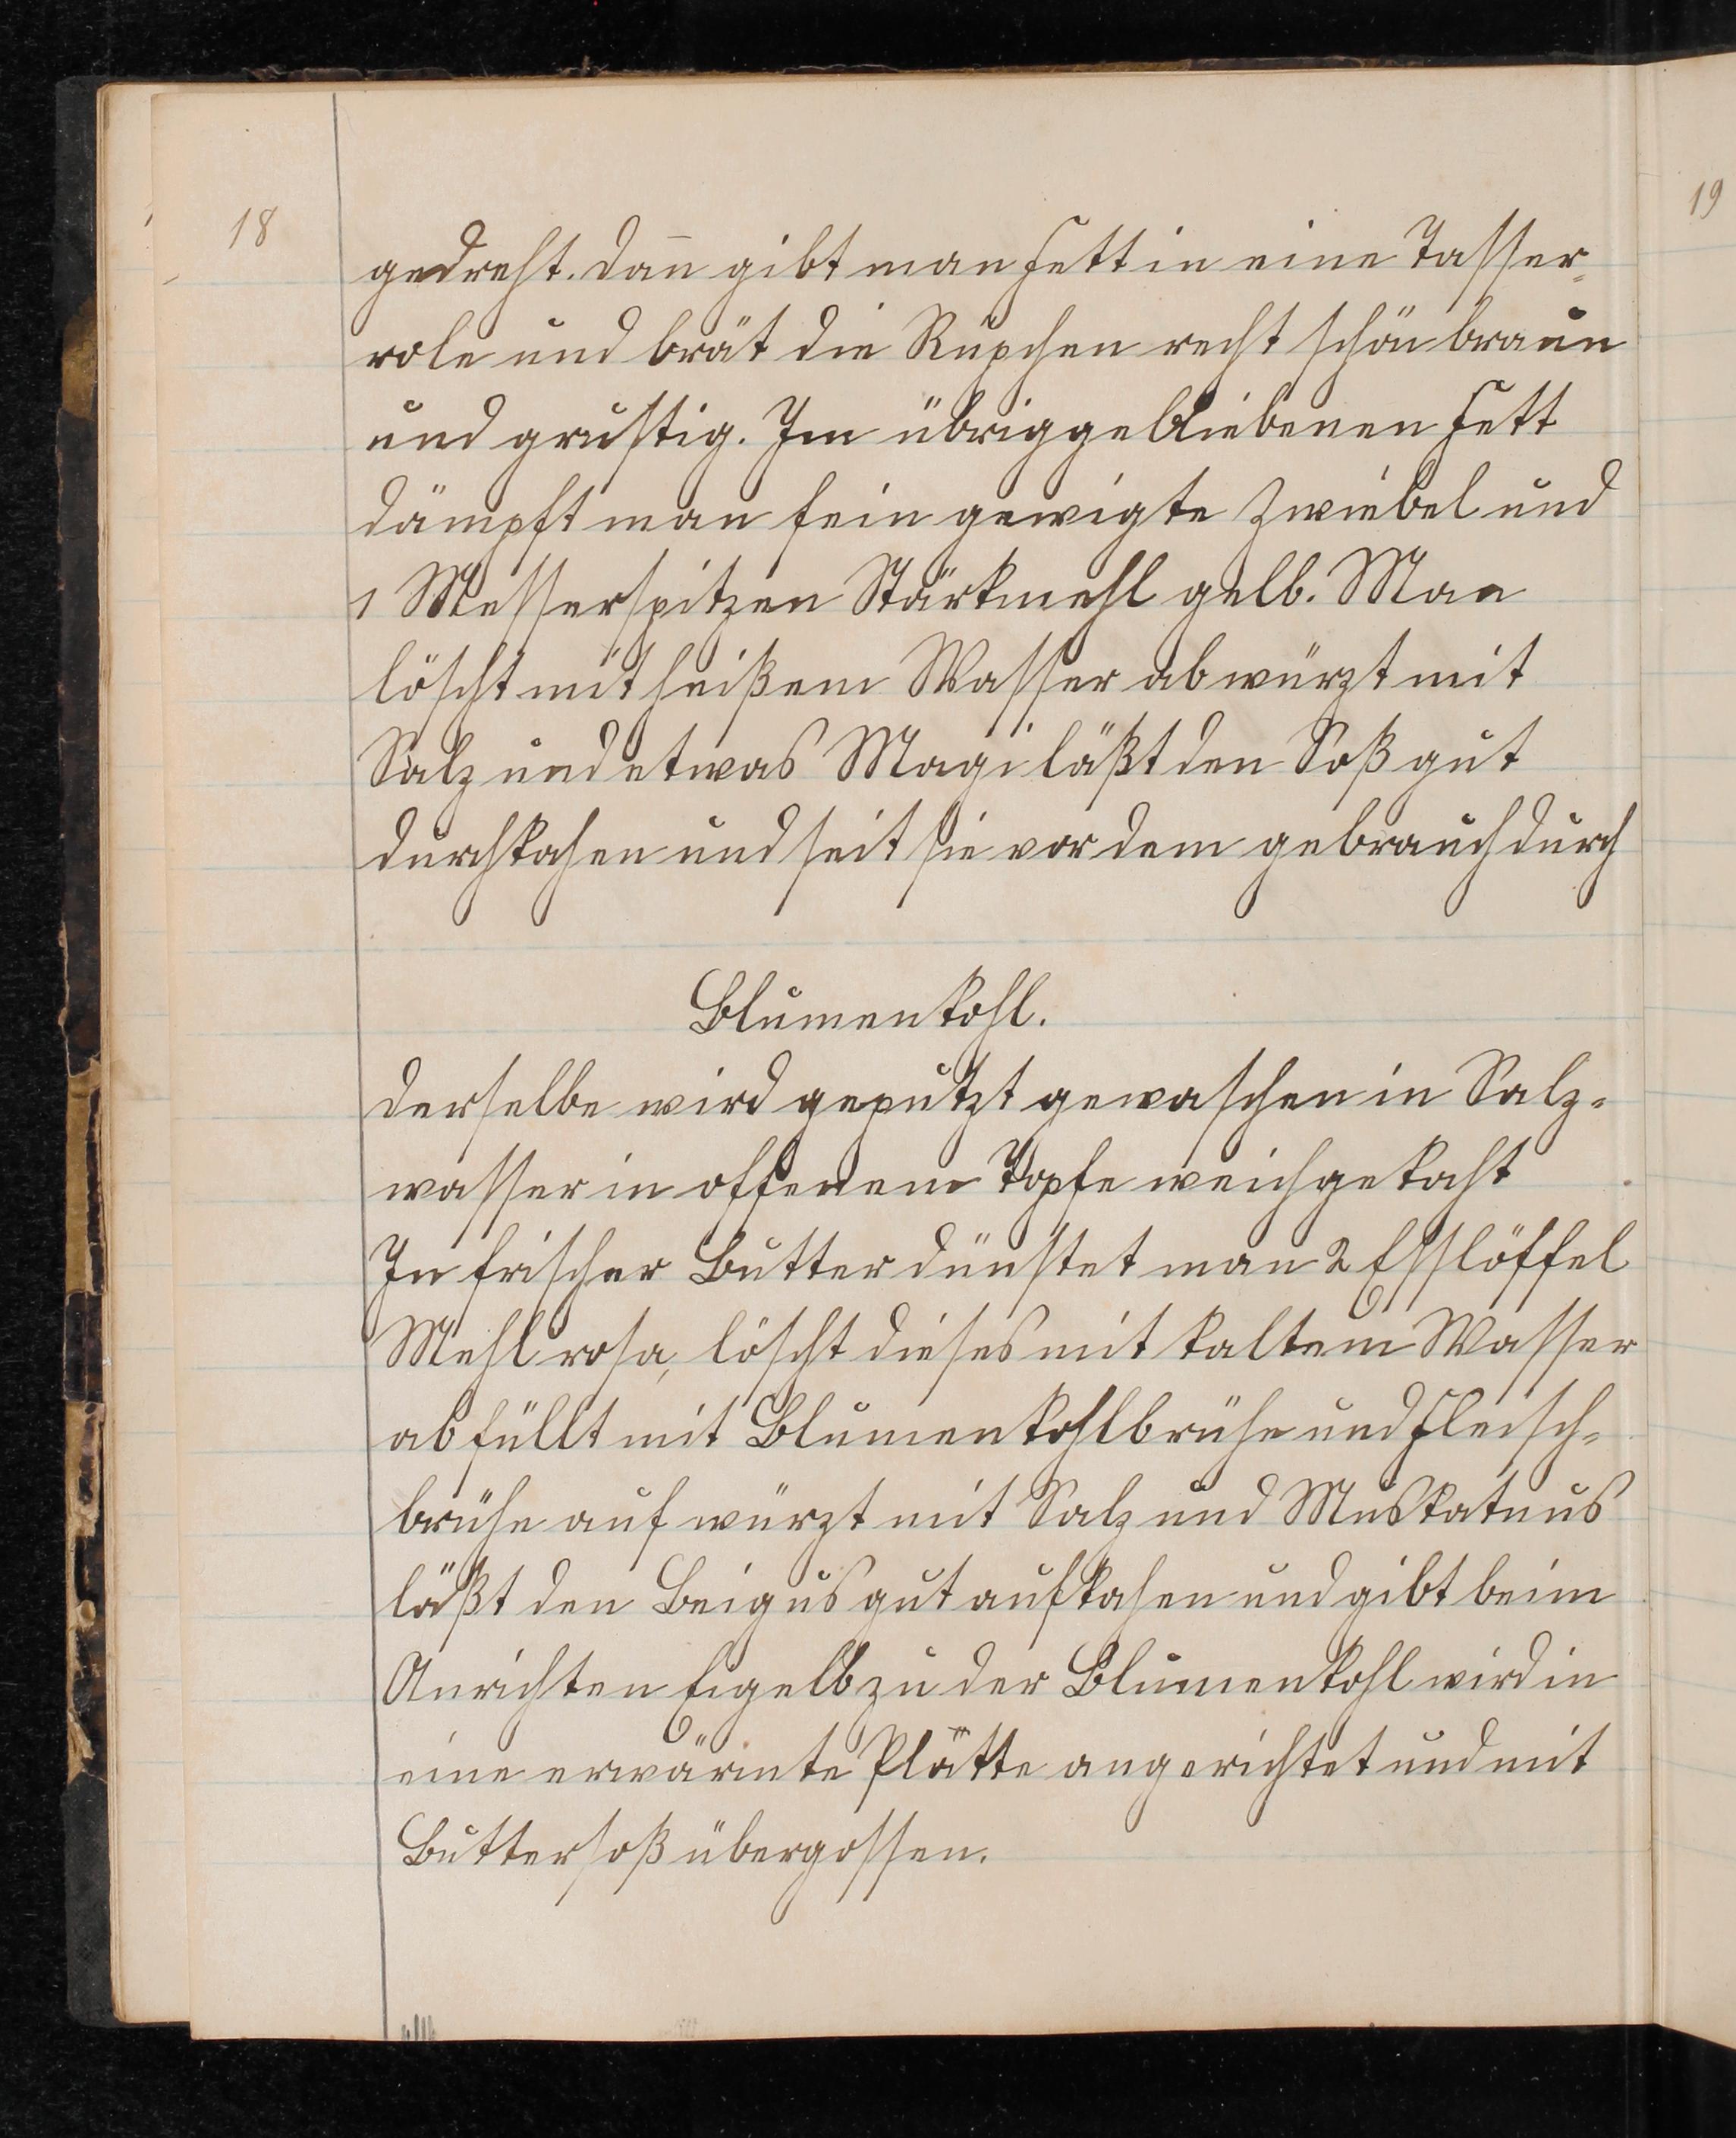 18
19
gedreht. Dan̄ gibt man Fett in eine Tasser-
role und brät die Rüpchen recht schön braun
und grustig. Im übriggebliebenen Fett
dämpft man fein gewigte Zwiebel und
1 Messerspitzen Stärkmehl gelb. Man
löscht mit heißem Wasser ab würzt mit
Salz und etwas Magi läßt den Soß gut
durchkochen und seit sie vor dem gebrauch durch
Blumenkohl.
Derselbe wird geputzt gewaschen in Salz-
wasser in offenem Topfe weich gekocht
In frischer Butter dünstet man 2 Esslöffel
Mehl rosa, löscht dieses mit kaltem Wasser
ab füllt mit Blumenkohlbrühe und Fleisch-
brühe auf würzt mit Salz und Muskatnus
läßt den Beigus gut aufkochen und gibt beim
Anrichten Eigelb zu der Blumenkohl wird in
eine erwärmte Platte angerichtet und mit
Buttersoß übergossen.